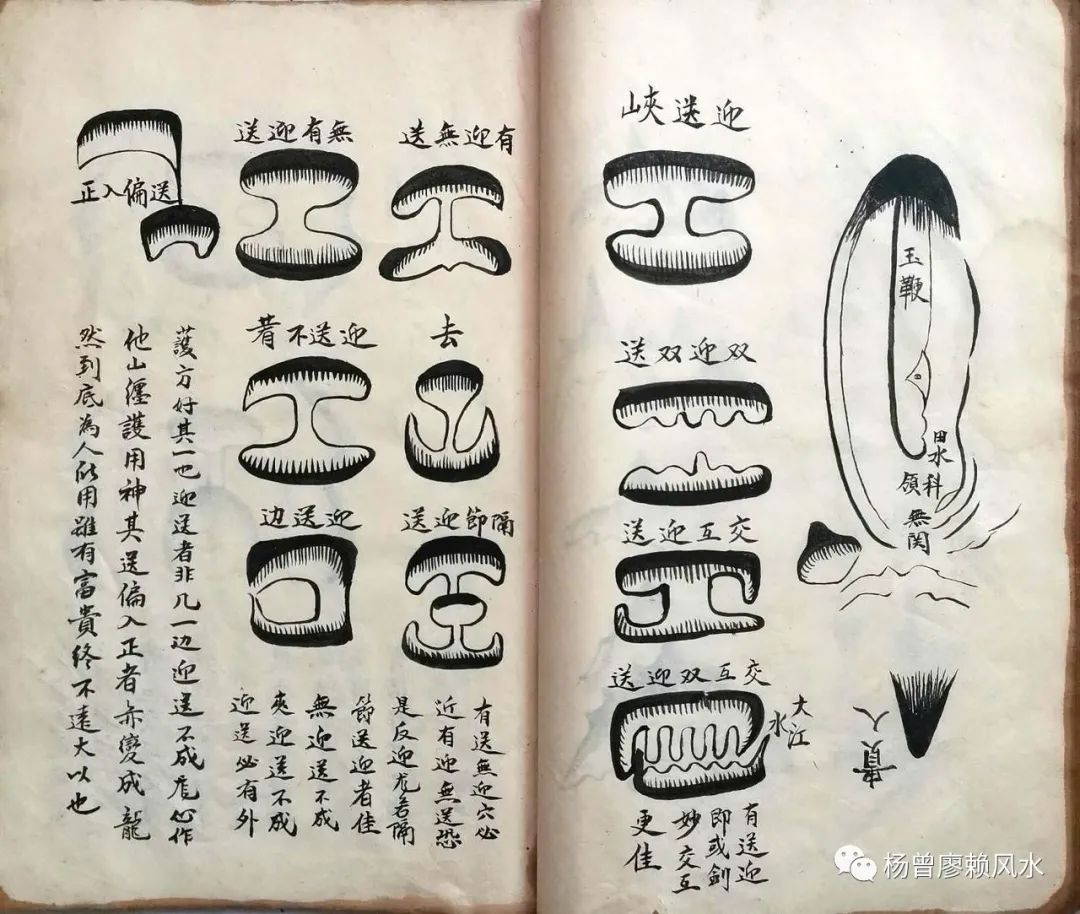 玉鞭
田水
科
領
無関
貴人
迎送峽
双迎双送
交互迎送
交互双迎送
大江
水
有送迎
即或劍
妙交互
更佳
有迎無送
去
隔節迎送
無有迎送
迎送不着
迎送边
送偏入正
有送無迎穴必
近有迎無送恐
是反迎龙若隔
節送迎者佳
無迎送不成
夾迎送不成
迎送必有外
護方好其一也迎送者非凡一边迎送不成必作
他山護用神其送偏入正者亦變成龍
然到底為人所用雖有富貴終不遠大以也
杨曾廖赖风水